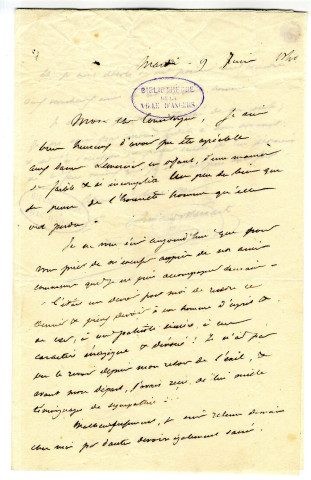 Mardi - 9 Juin 1840
BIBLIOTHÈQUE
DE LA
VILLE D'ANGERS
Mon cher Concitoyen, Je suis
bien heureux d'avoir pu être agréable
aux dames et ses enfants, d'une manière
si faible & si incomplète. Un peu de bien que
je pense de l'honnête homme qu'elles
ont perdu.
Je ne vous écris aujourd'hui que pour
vous prier de m'excuser auprès de nos amis
communs que je ne puis accompagner demain.
C'était un devoir pour moi de rendre ce
dernier & pieux devoir à un homme d'esprit &
de cœur, à un patriote sincère, à un
caractère énergique & dévoué! Je n'ai pas
pu le revoir depuis mon retour de l'exil, &
avant mon départ, j'avais reçu de lui mille
témoignages de sympathie.
Malheureusement, je suis retenu demain
chez moi par d'autres devoirs également sacrés.